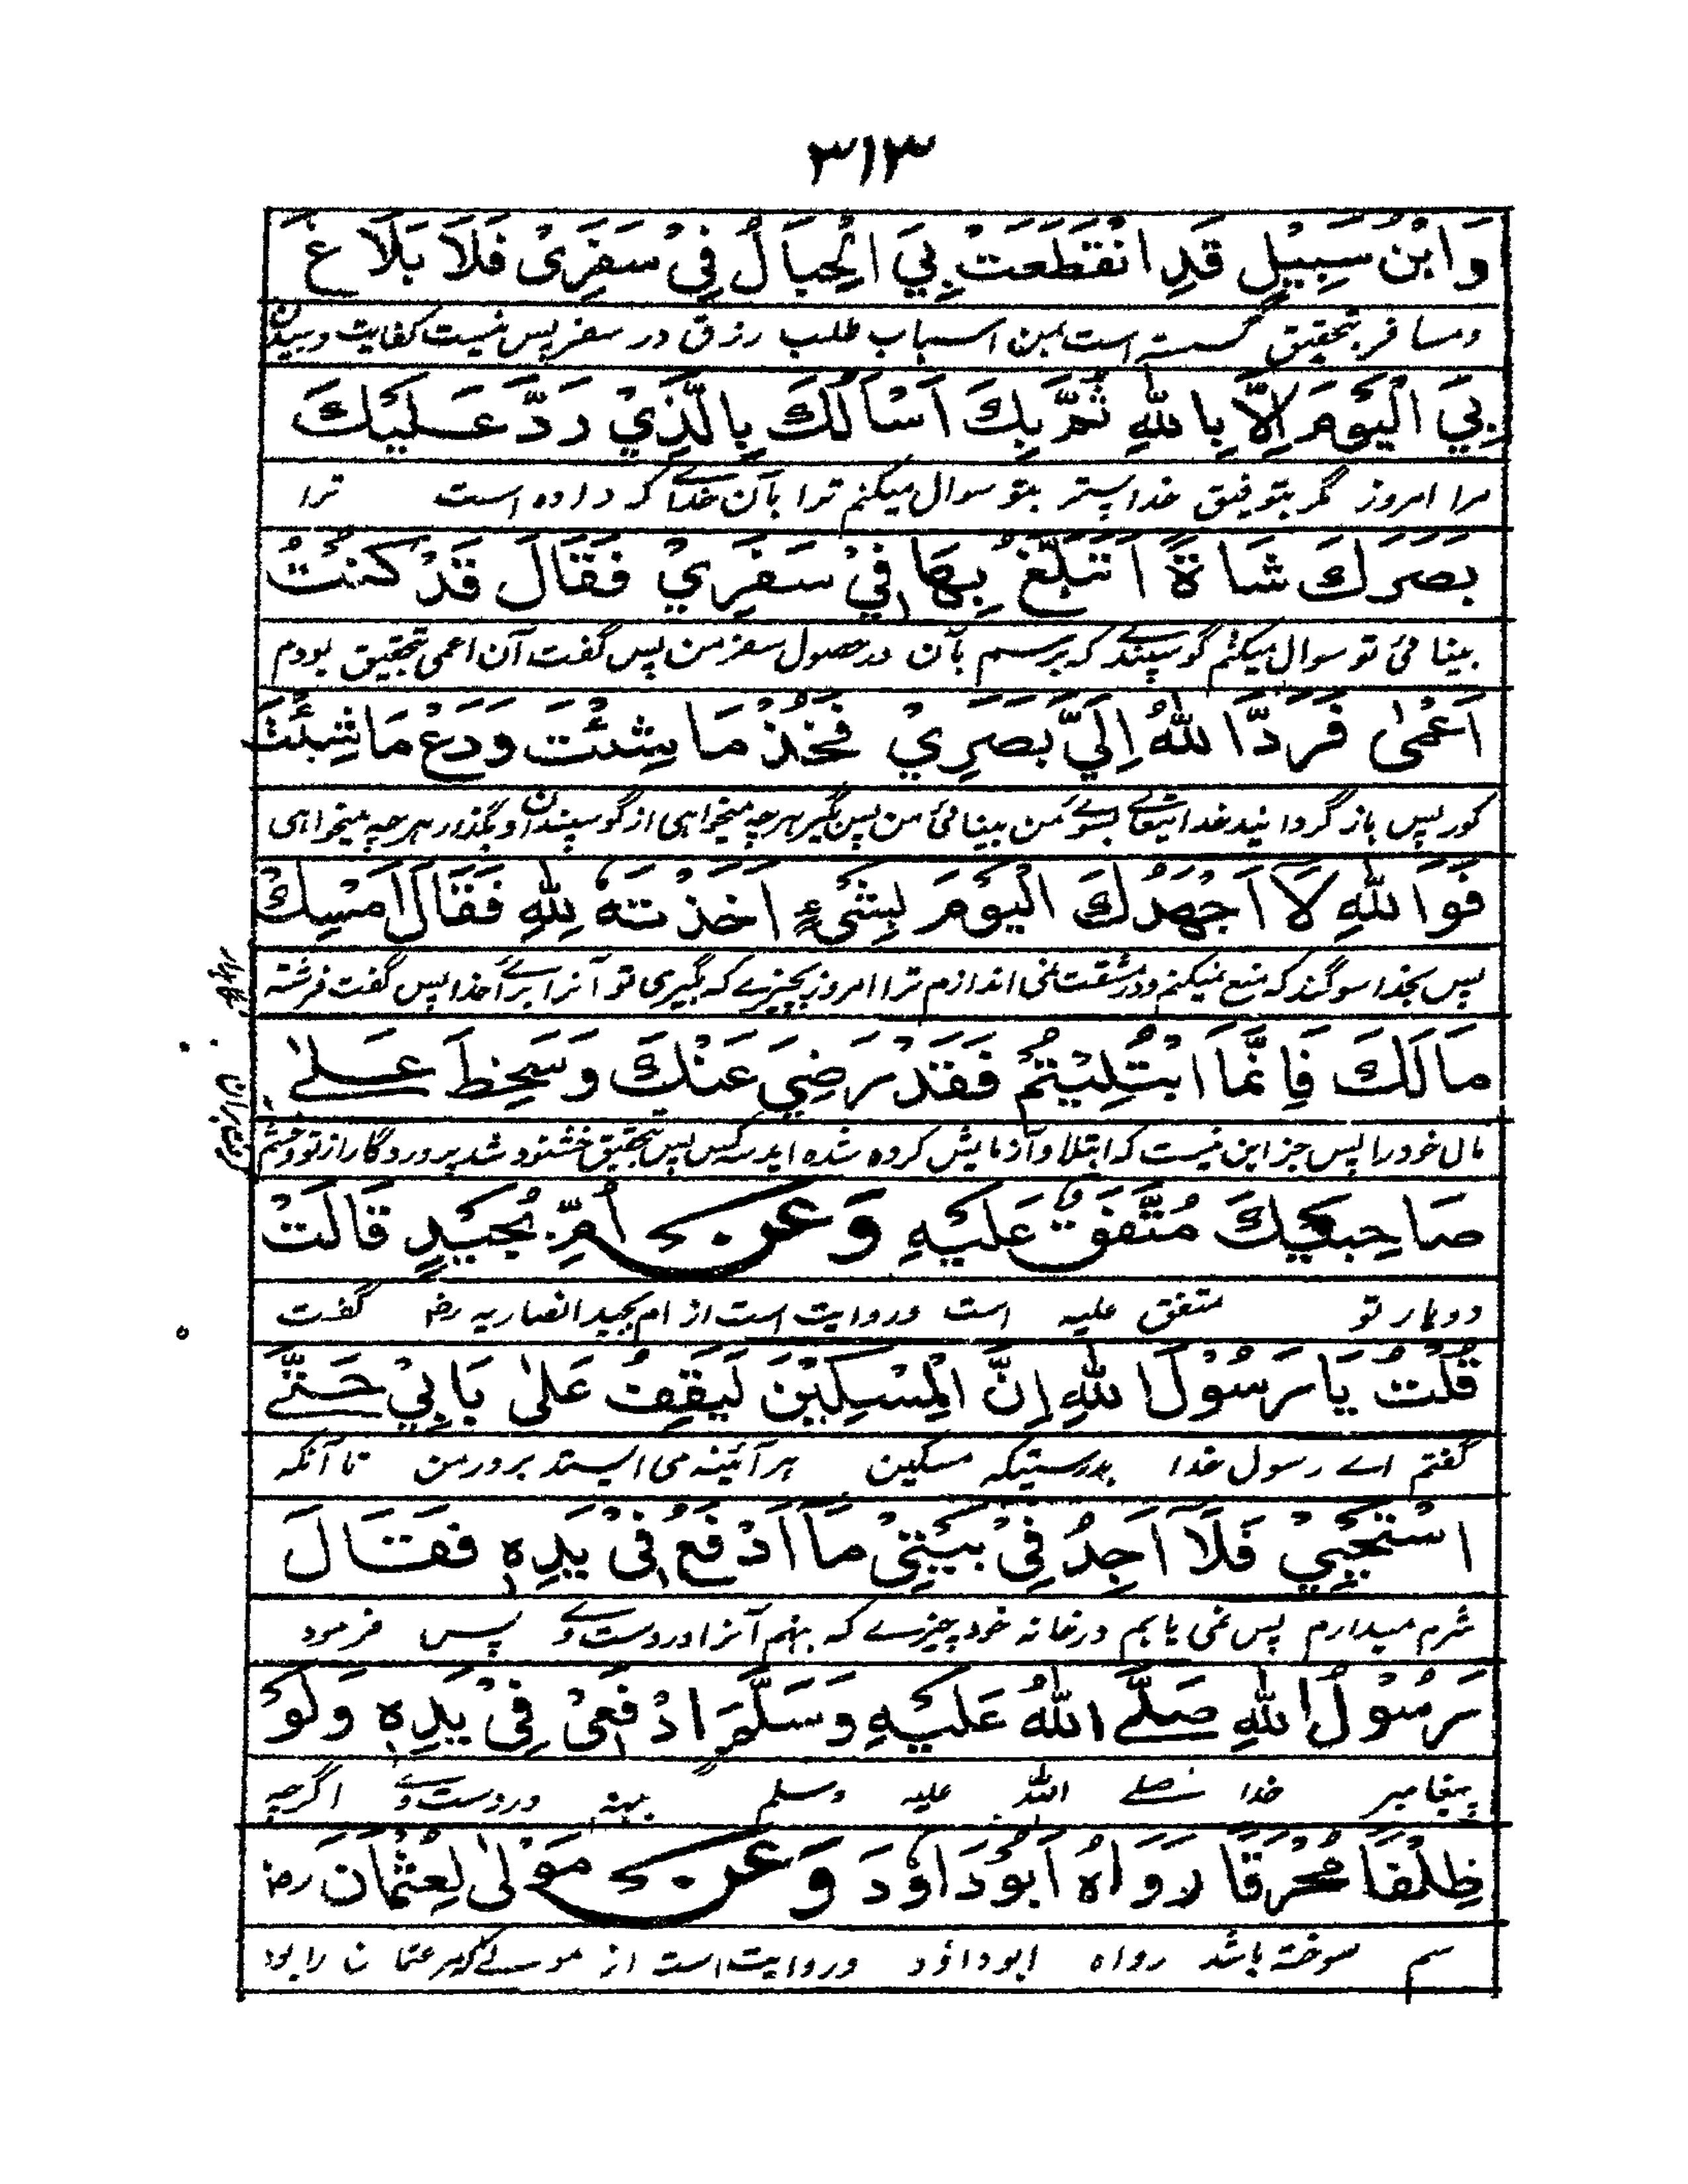 ۳۱۳
وَابْنُ سَبِيْلٍ قَدِ انْقَطَعَتْ بِيَ الْحِبَالُ فِيْ سَفَرِیْ فَلَا بَلَاغَ
ومسافر بتحقیق گسسته است بمن اسباب طلب رزق در سفر پس نیست کفایت
بِيَ الْيَوْمَ اِلَّا بِاللّٰهِ ثُمَّ بِكَ اَسْاَلُكَ بِالَّذِيْ رَدَّ عَلَيْكَ
مرا امروز مگر بتوفیق خدا پستر بتو سوال میکنم ترا بآن خدائے که داده است ترا
بَصَرَكَ شَاةً اَتَبَلَّغُ بِهَا فِيْ سَفَرِيْ فَقَالَ قَدْ كُنْتُ
بینائی تو سوال میکنم گوسپندے که برسم بآن در حصول سفر من پس گفت آن اعمی تحقیق بودم
اَعْمٰی فَرَدَّ اللّٰهُ اِلَيَّ بَصَرِيْ فَخُذْ مَا شِئْتَ وَدَعْ مَا شِئْتَ
کور پس باز گردانید خدا تعالے بسوئے من بینائی من پس بگیر هرچه میخواهی از گوسپندان و بگذار هرچه میخواهی
فَوَاللّٰهِ لَا اَجْهَدُكَ الْيَوْمَ بِشَیْءٍ اَخَذْتَهٗ لِلّٰهِ فَقَالَ اَمْسِكْ
پس بخدا سوگند که منع نمیکنم ودر مشقت نمی اندازم ترا امروز بچیزے که بگیری تو آنرا برائے خدا پس گفت فرشته
مَالَكَ فَاِنَّمَا ابْتُلِيْتُمْ فَقَدْ رَضِيَ عَنْكَ وَسَخِطَ عَلٰے
مال خود را پس جز این نیست که ابتلا و آزمایش کرده شده اید پس بتحقیق خشنود شد پروردگار از تو وخشم
صَاحِبَيْكَ مُتَّفَقٌ عَلَيْهِ وَعَنْ اُمِّ بُجَيْدٍ قَالَتْ
دو یار تو متفق علیه است وروایت است از ام بجید انصاریه رض گفت
قُلْتُ يَا رَسُوْلَ اللّٰهِ اِنَّ الْمِسْكِيْنَ لَيَقِفُ عَلٰی بَابِيْ حَتّٰے
گفتم اے رسول خدا بدرستیکه مسکین هر آئینه می ایستد بر در من تا آنکه
اسْتَحْيِيْ فَلَا اَجِدُ فِيْ بَيْتِیْ مَا اَدْفَعُ فِیْ يَدِهٖ فَقَالَ
شرم میدارم پس نمی یابم در خانه خود چیزے که بنهم آنرا در دست وے پس فرمود
رَسُوْلُ اللّٰهِ صَلَّے اللّٰهُ عَلَيْهِ وَسَلَّمَ ادْفَعِیْ فِیْ يَدِهٖ وَلَوْ
پیغامبر خدا صلے الله علیه وسلم بنه در دست وے اگرچه
ظِلْفًا مُحْرَقًا رَوَاهُ اَبُوْدَاوٗدَ وَعَنْ مَوْلٰی لِعُثْمَانَ رض
سم سوخته باشد رواه ابوداؤد وروایت است از مولے که مر عثمان را بود